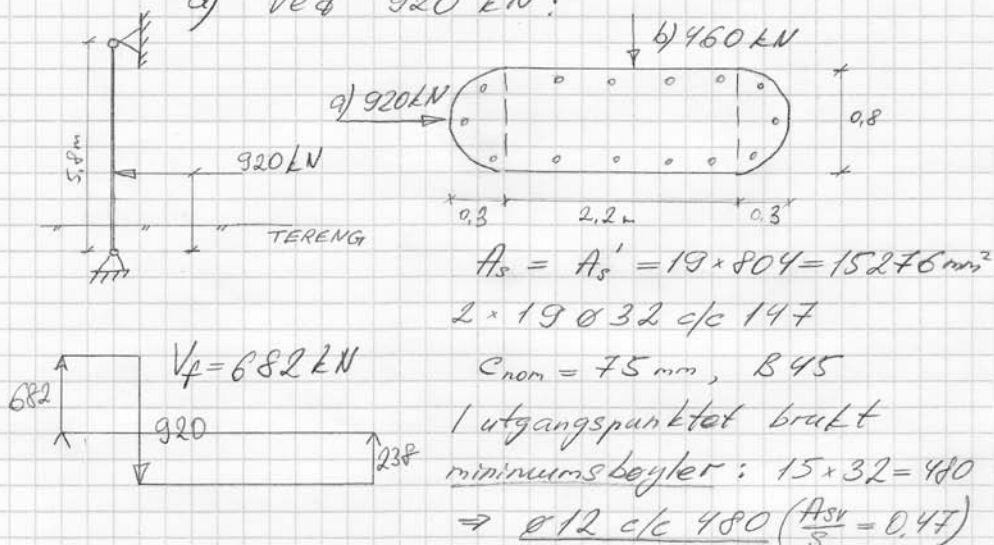 a) Ved 920 kN:
b) 460 kN
a) 920 kN
0,8
5,8m
920 kN
0,3 2,2 m 0,3
TERENG
As = As' = 19 × 804 = 15276 mm²
2 × 19 ø 32 c/c 147
Vf = 682 kN
Cnom = 75 mm, B 45
682
920
238
I utgangspunktet brukt
minimumsbøyler: 15 × 32 = 480
⇒ ø12 c/c 480 (Asv/S = 0,47)